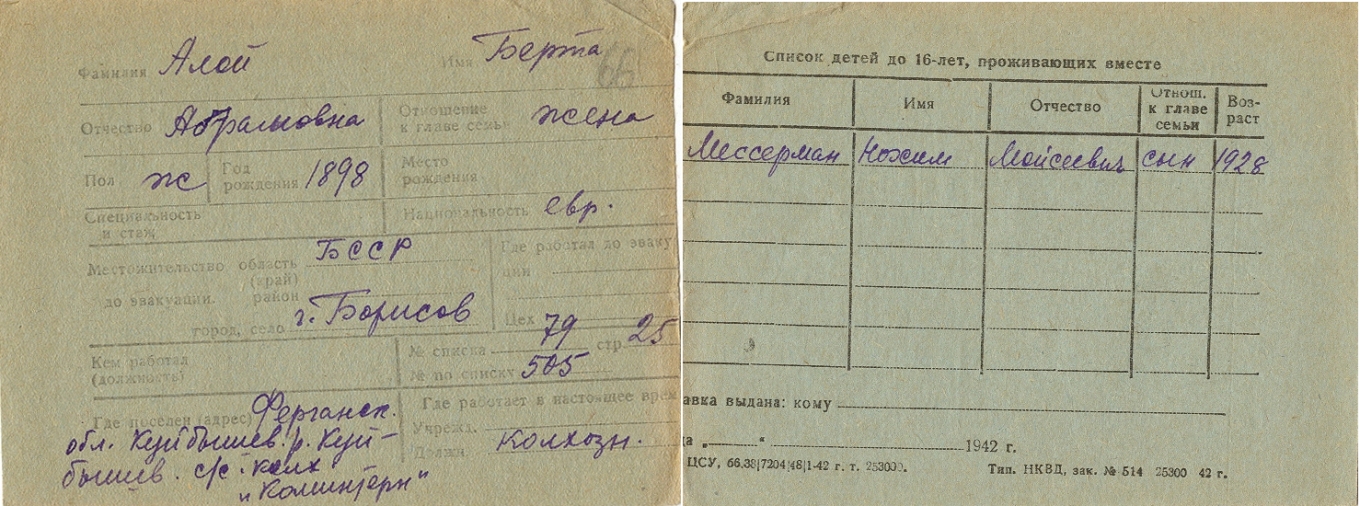 Фамилия Алой Имя Берта 66
Отчество Абрамовна Отношение к главе семьи жена
Пол ж Год рождения 1898 Место рождения
Специальность и стаж Национальность евр.
Местожительство до эвакуации. область (край) БССР Где работал до эваку
район ции
город, село г. Борисов Цех
Кем работал (должность) № списка 79 стр. 25
№ по списку 505
Где поселен (адрес) Ферганск. Где работает в настоящее врем
обл. Куйбышев. р. Куй- Учрежд.
бышев. с/с. колх Должн. колхозн.
„Коминтерн"
Список детей до 16-лет, проживающих вместе
Фамилия Имя Отчество Отнош. к главе семьи Воз-раст
Мессерман Нохим Мойсеевич сын 1928
авка выдана: кому
ца „ “ 1942 г.
ЦСУ, 66,38|7204|48|1-42 г. т. 253000. Тип. НКВД, зак. № 514 25300 42 г.